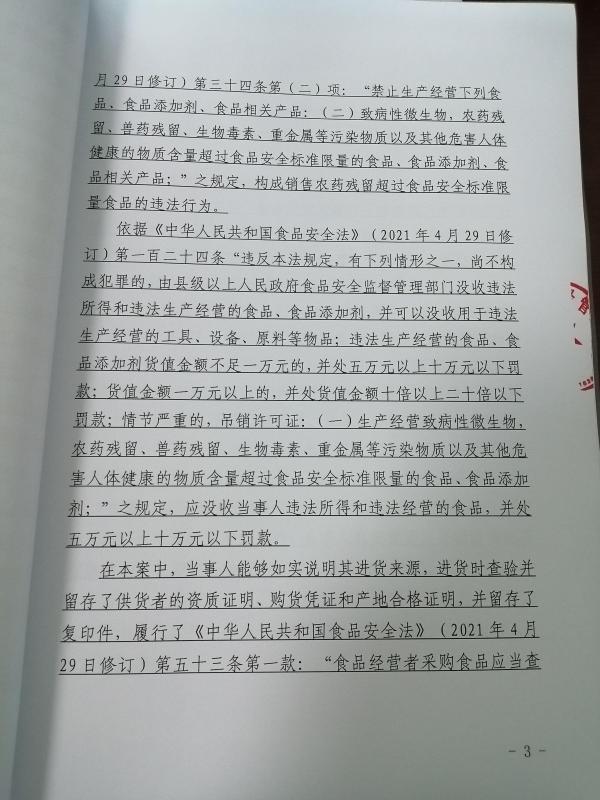 月29日修订）第三十四条第（二）项：“禁止生产经营下列食
品、食品添加剂、食品相关产品：（二）致病性微生物，农药残
留、兽药残留、生物毒素、重金属等污染物质以及其他危害人体
健康的物质含量超过食品安全标准限量的食品、食品添加剂、食
品相关产品；”之规定，构成销售农药残留超过食品安全标准限
量食品的违法行为。
依据《中华人民共和国食品安全法》（2021年4月29日修
订）第一百二十四条“违反本法规定，有下列情形之一，尚不构
成犯罪的，由县级以上人民政府食品安全监督管理部门没收违法
所得和违法生产经营的食品、食品添加剂，并可以没收用于违法
生产经营的工具、设备、原料等物品；违法生产经营的食品、食
品添加剂货值金额不足一万元的，并处五万元以上十万元以下罚
款；货值金额一万元以上的，并处货值金额十倍以上二十倍以下
罚款；情节严重的，吊销许可证：（一）生产经营致病性微生物，
农药残留、兽药残留、生物毒素、重金属等污染物质以及其他危
害人体健康的物质含量超过食品安全标准限量的食品、食品添加
剂；”之规定，应没收当事人违法所得和违法经营的食品，并处
五万元以上十万元以下罚款。
在本案中，当事人能够如实说明其进货来源，进货时查验并
留存了供货者的资质证明、购货凭证和产地合格证明，并留存了
复印件，履行了《中华人民共和国食品安全法》（2021年4月
29日修订）第五十三条第一款：“食品经营者采购食品应当查
- 3 -